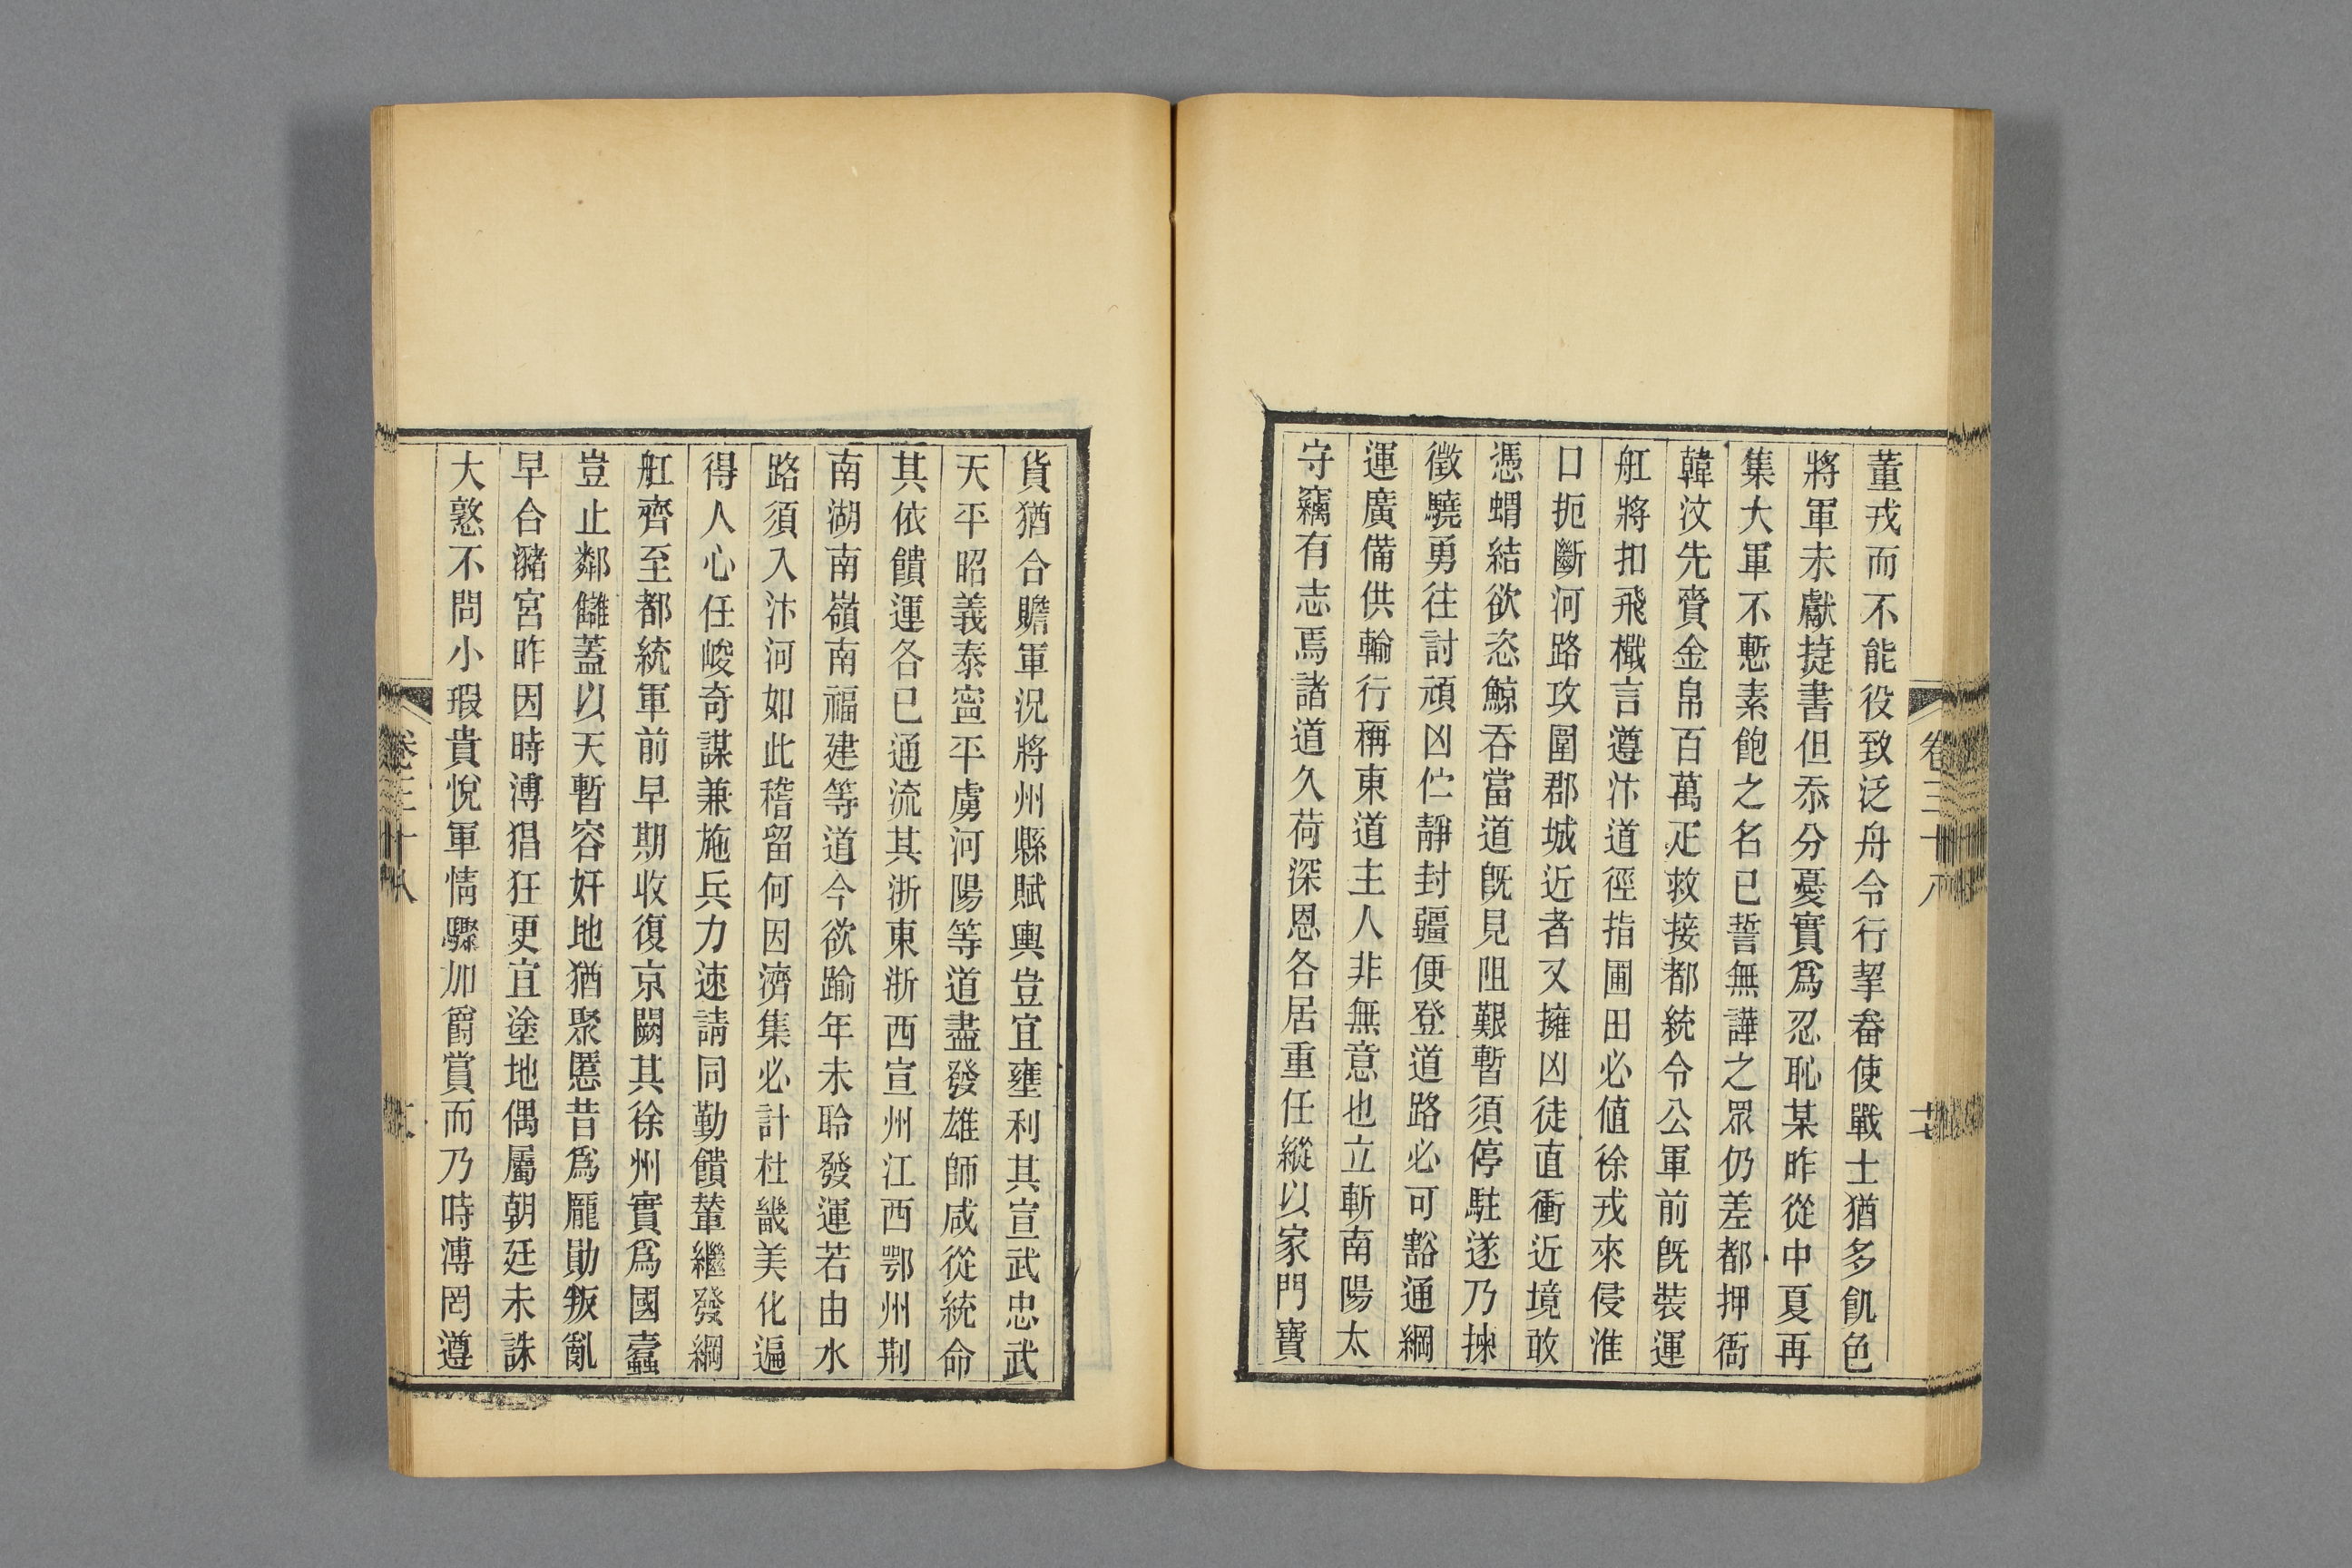 董戎而不能役致泛舟令行挈畚使戰士猶多飢色
將軍未獻捷書但忝分憂實爲忍恥某昨從中夏再
集大軍不慙素飽之名已誓無譁之眾仍差都押衙
韓汶先賫金帛百萬疋救接都統令公軍前旣裝運
舡將扣飛檝言遵汴道徑指圃田必値徐戎來侵淮
口扼斷河路攻圍郡城近者又擁凶徒直衝近境敢
憑蝟結欲恣鯨吞當道旣見阻艱暫須停駐遂乃揀
徵驍勇往討頑凶伫靜封疆便登道路必可豁通綱
運廣備供輸行稱東道主人非無意也立斬南陽太
守竊有志焉諸道久荷深恩各居重任縱以家門寶
卷三十八
貨猶合贍軍況將州縣賦輿豈宜壅利其宣武忠武
天平昭義泰寧平虜河陽等道盡發雄師咸從統命
其依饋運各已通流其浙東浙西宣州江西鄂州荆
南湖南嶺南福建等道今欲踰年未聆發運若由水
路須入汴河如此稽留何因濟集必計杜畿美化遍
得人心任峻奇謀兼施兵力速請同勤饋輦繼發綱
舡齊至都統軍前早期收復京闕其徐州實爲國蠹
豈止鄰讎蓋以天暫容奸地猶聚慝昔爲龐勛叛亂
早合瀦宮昨因時溥猖狂更宜塗地偶屬朝廷未誅
大憝不問小瑕貴悅軍情驟加爵賞而乃時溥罔遵
卷三十八